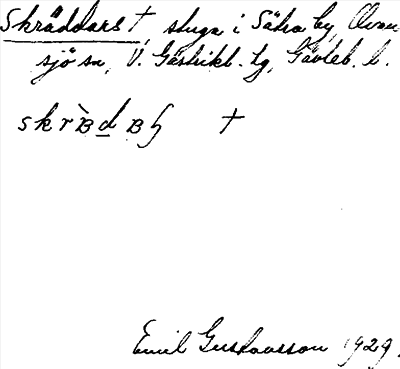 Skräddars †, stuga i Sätra by, Ovan-
sjö sn, V. Gästrikl. hg, Gävleb. l.
skr̀ʙdʙɧ †
Emil Gustavsson 1929.